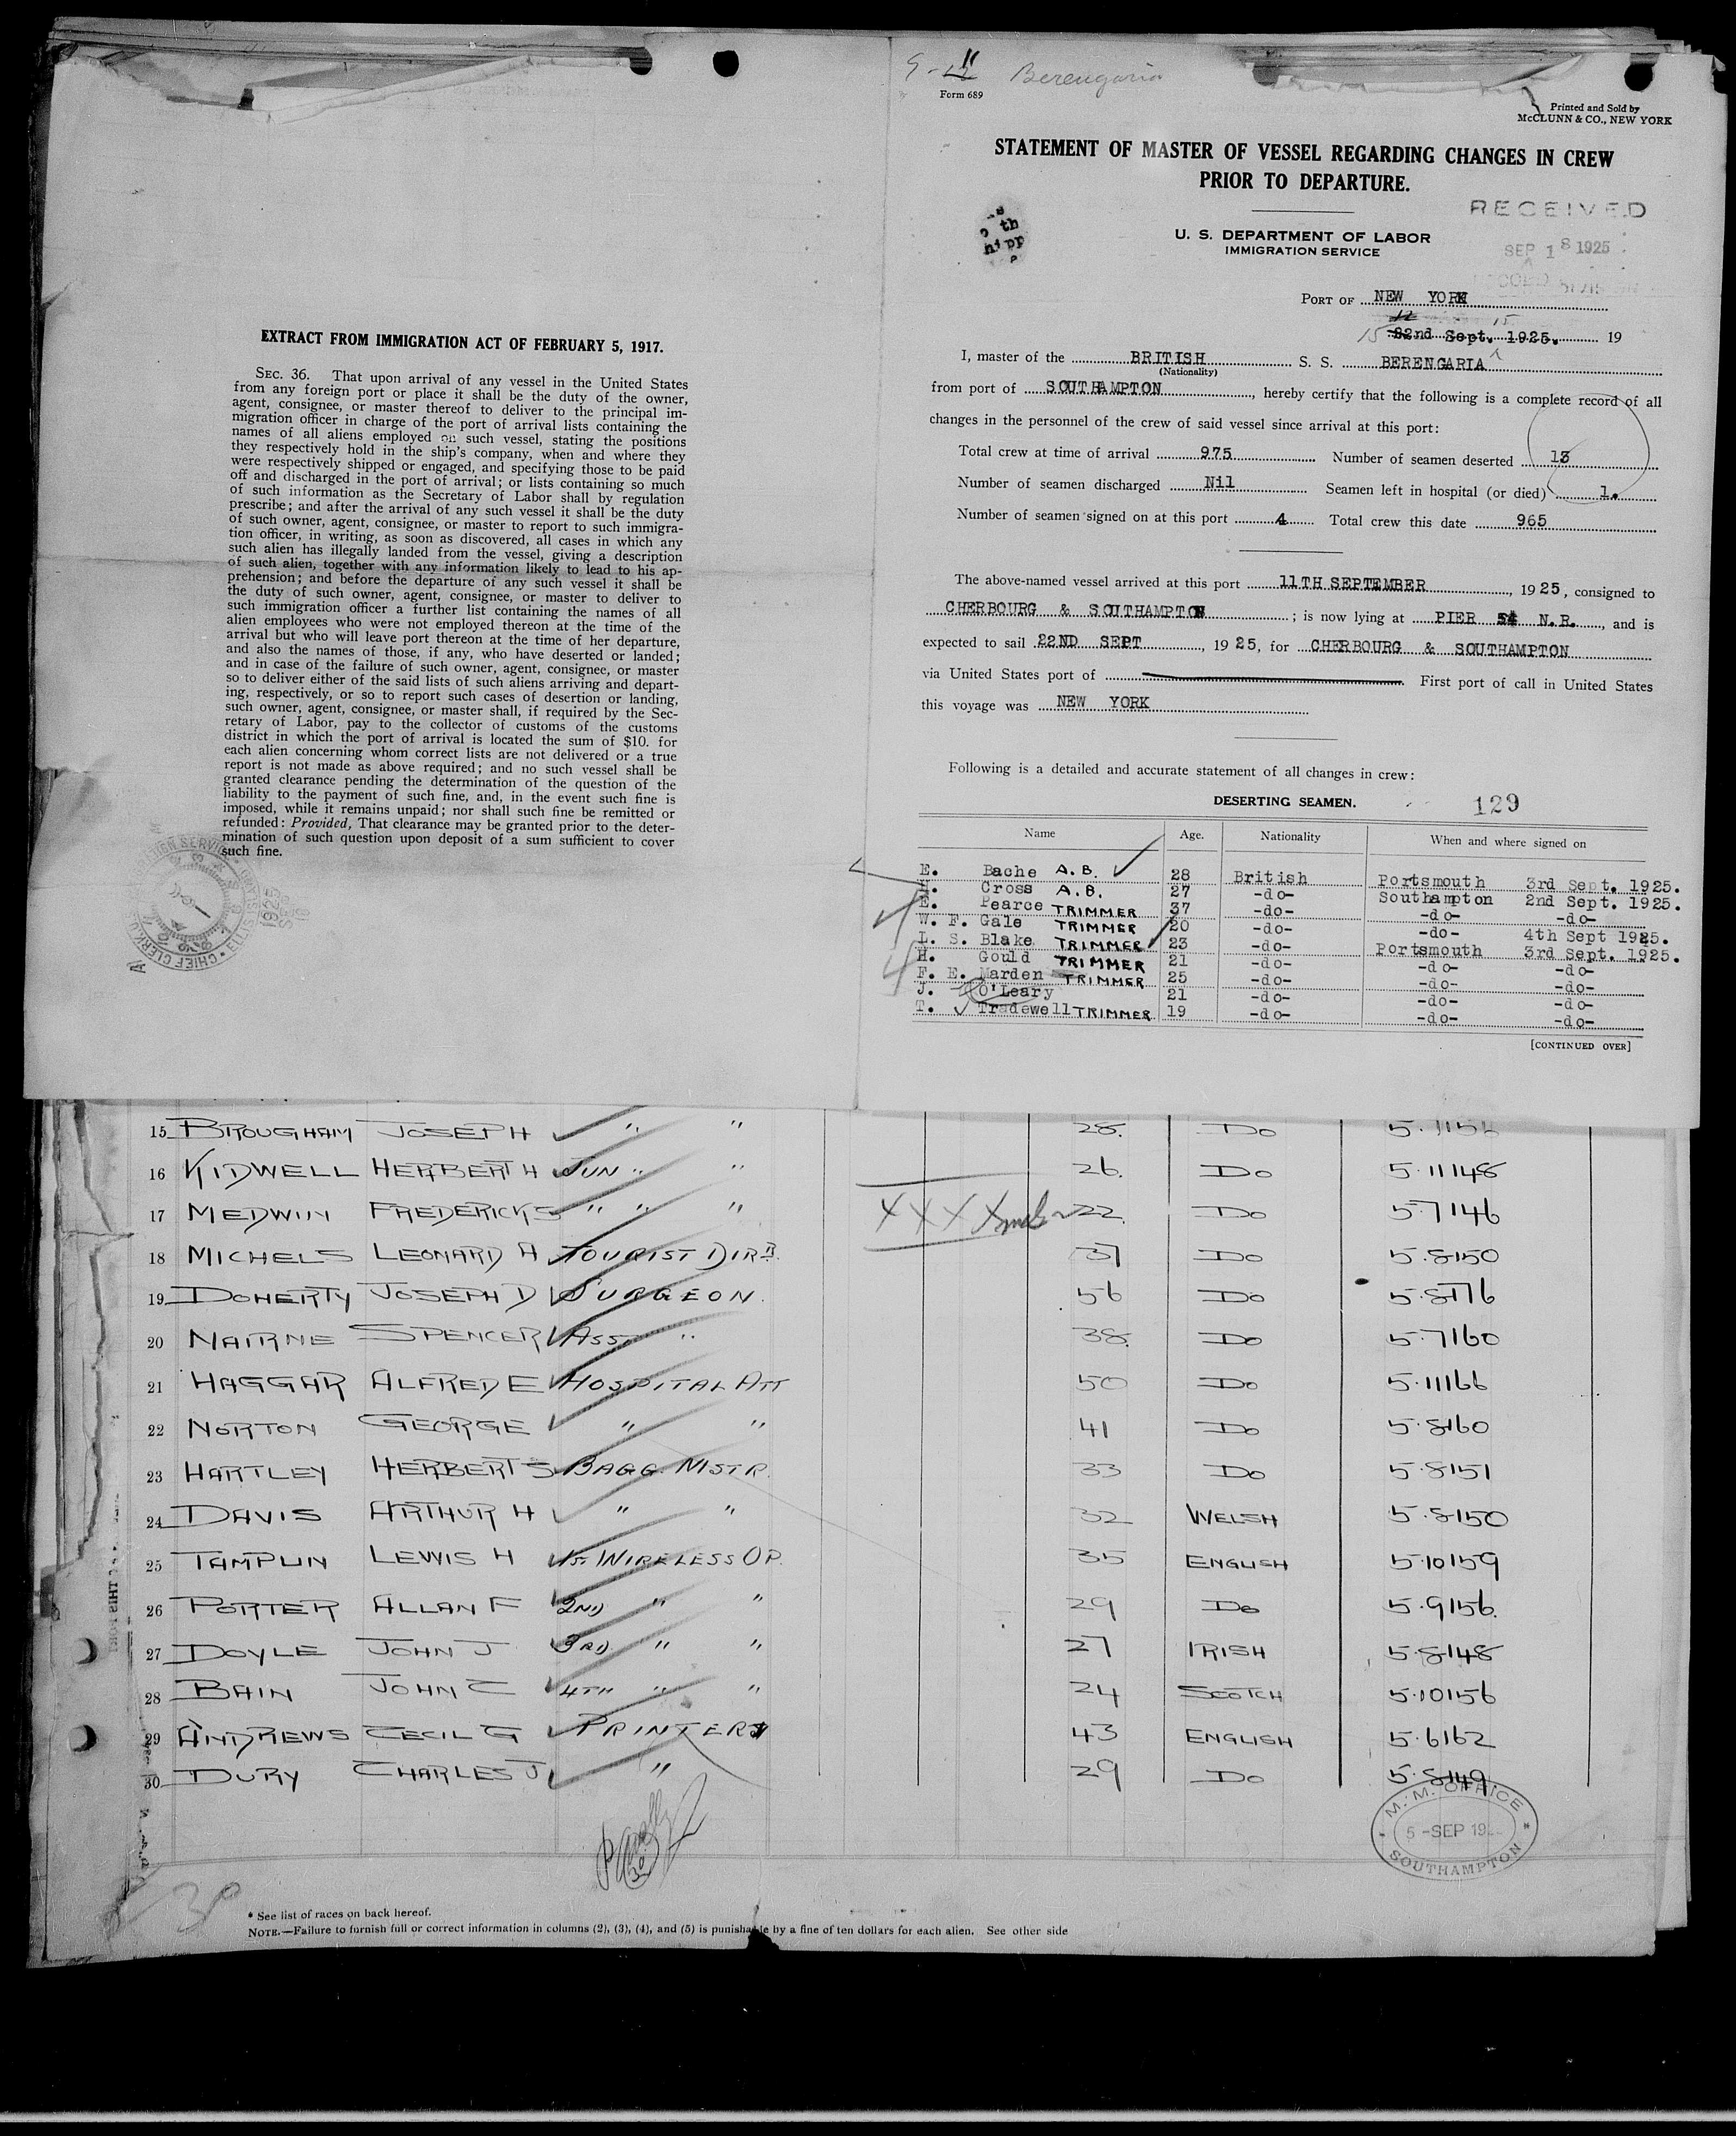 EXTRACT FROM IMMIGRATION ACT OF FEBRUARY 5, 1917.
SEC. 36. That upon arrival of any vessel in the United States
from any foreign port or place it shall be the duty of the owner,
agent, consignee, or master thereof to deliver to the principal im-
migration officer in charge of the port of arrival lists containing the
names of all aliens employed on such vessel, stating the positions
they respectively hold in the ship's company, when and where they
were respectively shipped or engaged, and specifying those to be paid
off and discharged in the port of arrival; or lists containing so much
of such information as the Secretary of Labor shall by regulation
prescribe; and after the arrival of any such vessel it shall be the duty
of such owner, agent, consignee, or master to report to such immigra-
tion officer, in writing, as soon as discovered, all cases in which any
such alien has illegally landed from the vessel, giving a description
of such alien, together with any information likely to lead to his ap-
prehension; and before the departure of any such vessel it shall be
the duty of such owner, agent, consignee, or master to deliver to
such immigration officer a further list containing the names of all
alien employees who were not employed thereon at the time of the
arrival but who will leave port thereon at the time of her departure,
and also the names of those, if any, who have deserted or landed;
and in case of the failure of such owner, agent, consignee, or master
so to deliver either of the said lists of such aliens arriving and depart-
ing, respectively, or so to report such cases of desertion or landing,
such owner, agent, consignee, or master shall, if required by the Sec-
retary of Labor, pay to the collector of customs of the customs
district in which the port of arrival is located the sum of $10. for
each alien concerning whom correct lists are not delivered or a true
report is not made as above required; and no such vessel shall be
granted clearance pending the determination of the question of the
liability to the payment of such fine, and, in the event such fine is
imposed, while it remains unpaid; nor shall such fine be remitted or
refunded: Provided, That clearance may be granted prior to the deter-
mination of such question upon deposit of a sum sufficient to cover
such fine.
Berengaria
Form 689
Printed and Sold by
McCLUNN & CO., NEW YORK
STATEMENT OF MASTER OF VESSEL REGARDING CHANGES IN CREW
PRIOR TO DEPARTURE.
RECEIVED
SEP 18 1925
U. S. DEPARTMENT OF LABOR
IMMIGRATION SERVICE
PORT OF NEW YORK
15 22nd Sept. 1925. 19
I, master of the BRITISH S. S. BERENGARIA
(Nationality)
from port of SOUTHAMPTON, hereby certify that the following is a complete record of all
changes in the personnel of the crew of said vessel since arrival at this port:
Total crew at time of arrival 975 Number of seamen deserted 13
Number of seamen discharged Nil Seamen left in hospital (or died) 1.
Number of seamen signed on at this port 4 Total crew this date 965
The above-named vessel arrived at this port 11TH SEPTEMBER, 1925, consigned to
CHERBOURG & SOUTHAMPTON; is now lying at PIER 54 N.R., and is
expected to sail 22ND SEPT, 1925, for CHERBOURG & SOUTHAMPTON
via United States port of First port of call in United States
this voyage was NEW YORK
Following is a detailed and accurate statement of all changes in crew:
DESERTING SEAMEN. 129
Name Age. Nationality When and where signed on
E. Bache A.B. 28 British Portsmouth 3rd Sept. 1925.
H. Cross A.B. 27 -do- Southampton 2nd Sept. 1925.
E. Pearce TRIMMER 37 -do- -do- -do-
W. F. Gale TRIMMER 20 -do- -do- 4th Sept 1925.
L. S. Blake TRIMMER 23 -do- Portsmouth 3rd Sept. 1925.
H. Gould TRIMMER 21 -do- -do- -do-
F. E. Marden TRIMMER 25 -do- -do- -do-
J. O'Leary 21 -do- -do- -do-
T. Tradewell TRIMMER 19 -do- -do- -do-
[CONTINUED OVER]
15 BROUGHAM JOSEPH " " 28. DO
16 KIDWELL HERBERT H JUN " " 26. DO 5.11 148
17 MEDWIN FREDERICK S " " " XXXX 22. DO 5.7 146
18 MICHELS LEONARD A TOURIST DIR 37 DO 5.8 150
19 DOHERTY JOSEPH D SURGEON. 56 DO 5.8 176
20 NAIRNE SPENCER ASST " 38. DO 5.7 160
21 HAGGAR ALFRED E HOSPITAL ATT 50 DO 5.11 166
22 NORTON GEORGE " " 41 DO 5.8 160
23 HARTLEY HERBERT S BAGG. MSTR. 33 DO 5.8 151
24 DAVIS ARTHUR H " " 32 WELSH 5.8 150
25 TAMPLIN LEWIS H 1ST WIRELESS OP. 35 ENGLISH 5.10 159
26 PORTER ALLAN F 2ND " " 29 DO 5.9 156.
27 DOYLE JOHN J 3RD " " 27 IRISH 5.8 148
28 BAIN JOHN C 4TH " " 24 SCOTCH 5.10 156
29 ANDREWS CECIL G PRINTER 43 ENGLISH 5.6 162
30 DURY CHARLES J " 29 DO 5.8 149
M. M. OFFICE
5 -SEP 19
SOUTHAMPTON
30
* See list of races on back hereof.
NOTE.—Failure to furnish full or correct information in columns (2), (3), (4), and (5) is punishable by a fine of ten dollars for each alien. See other side